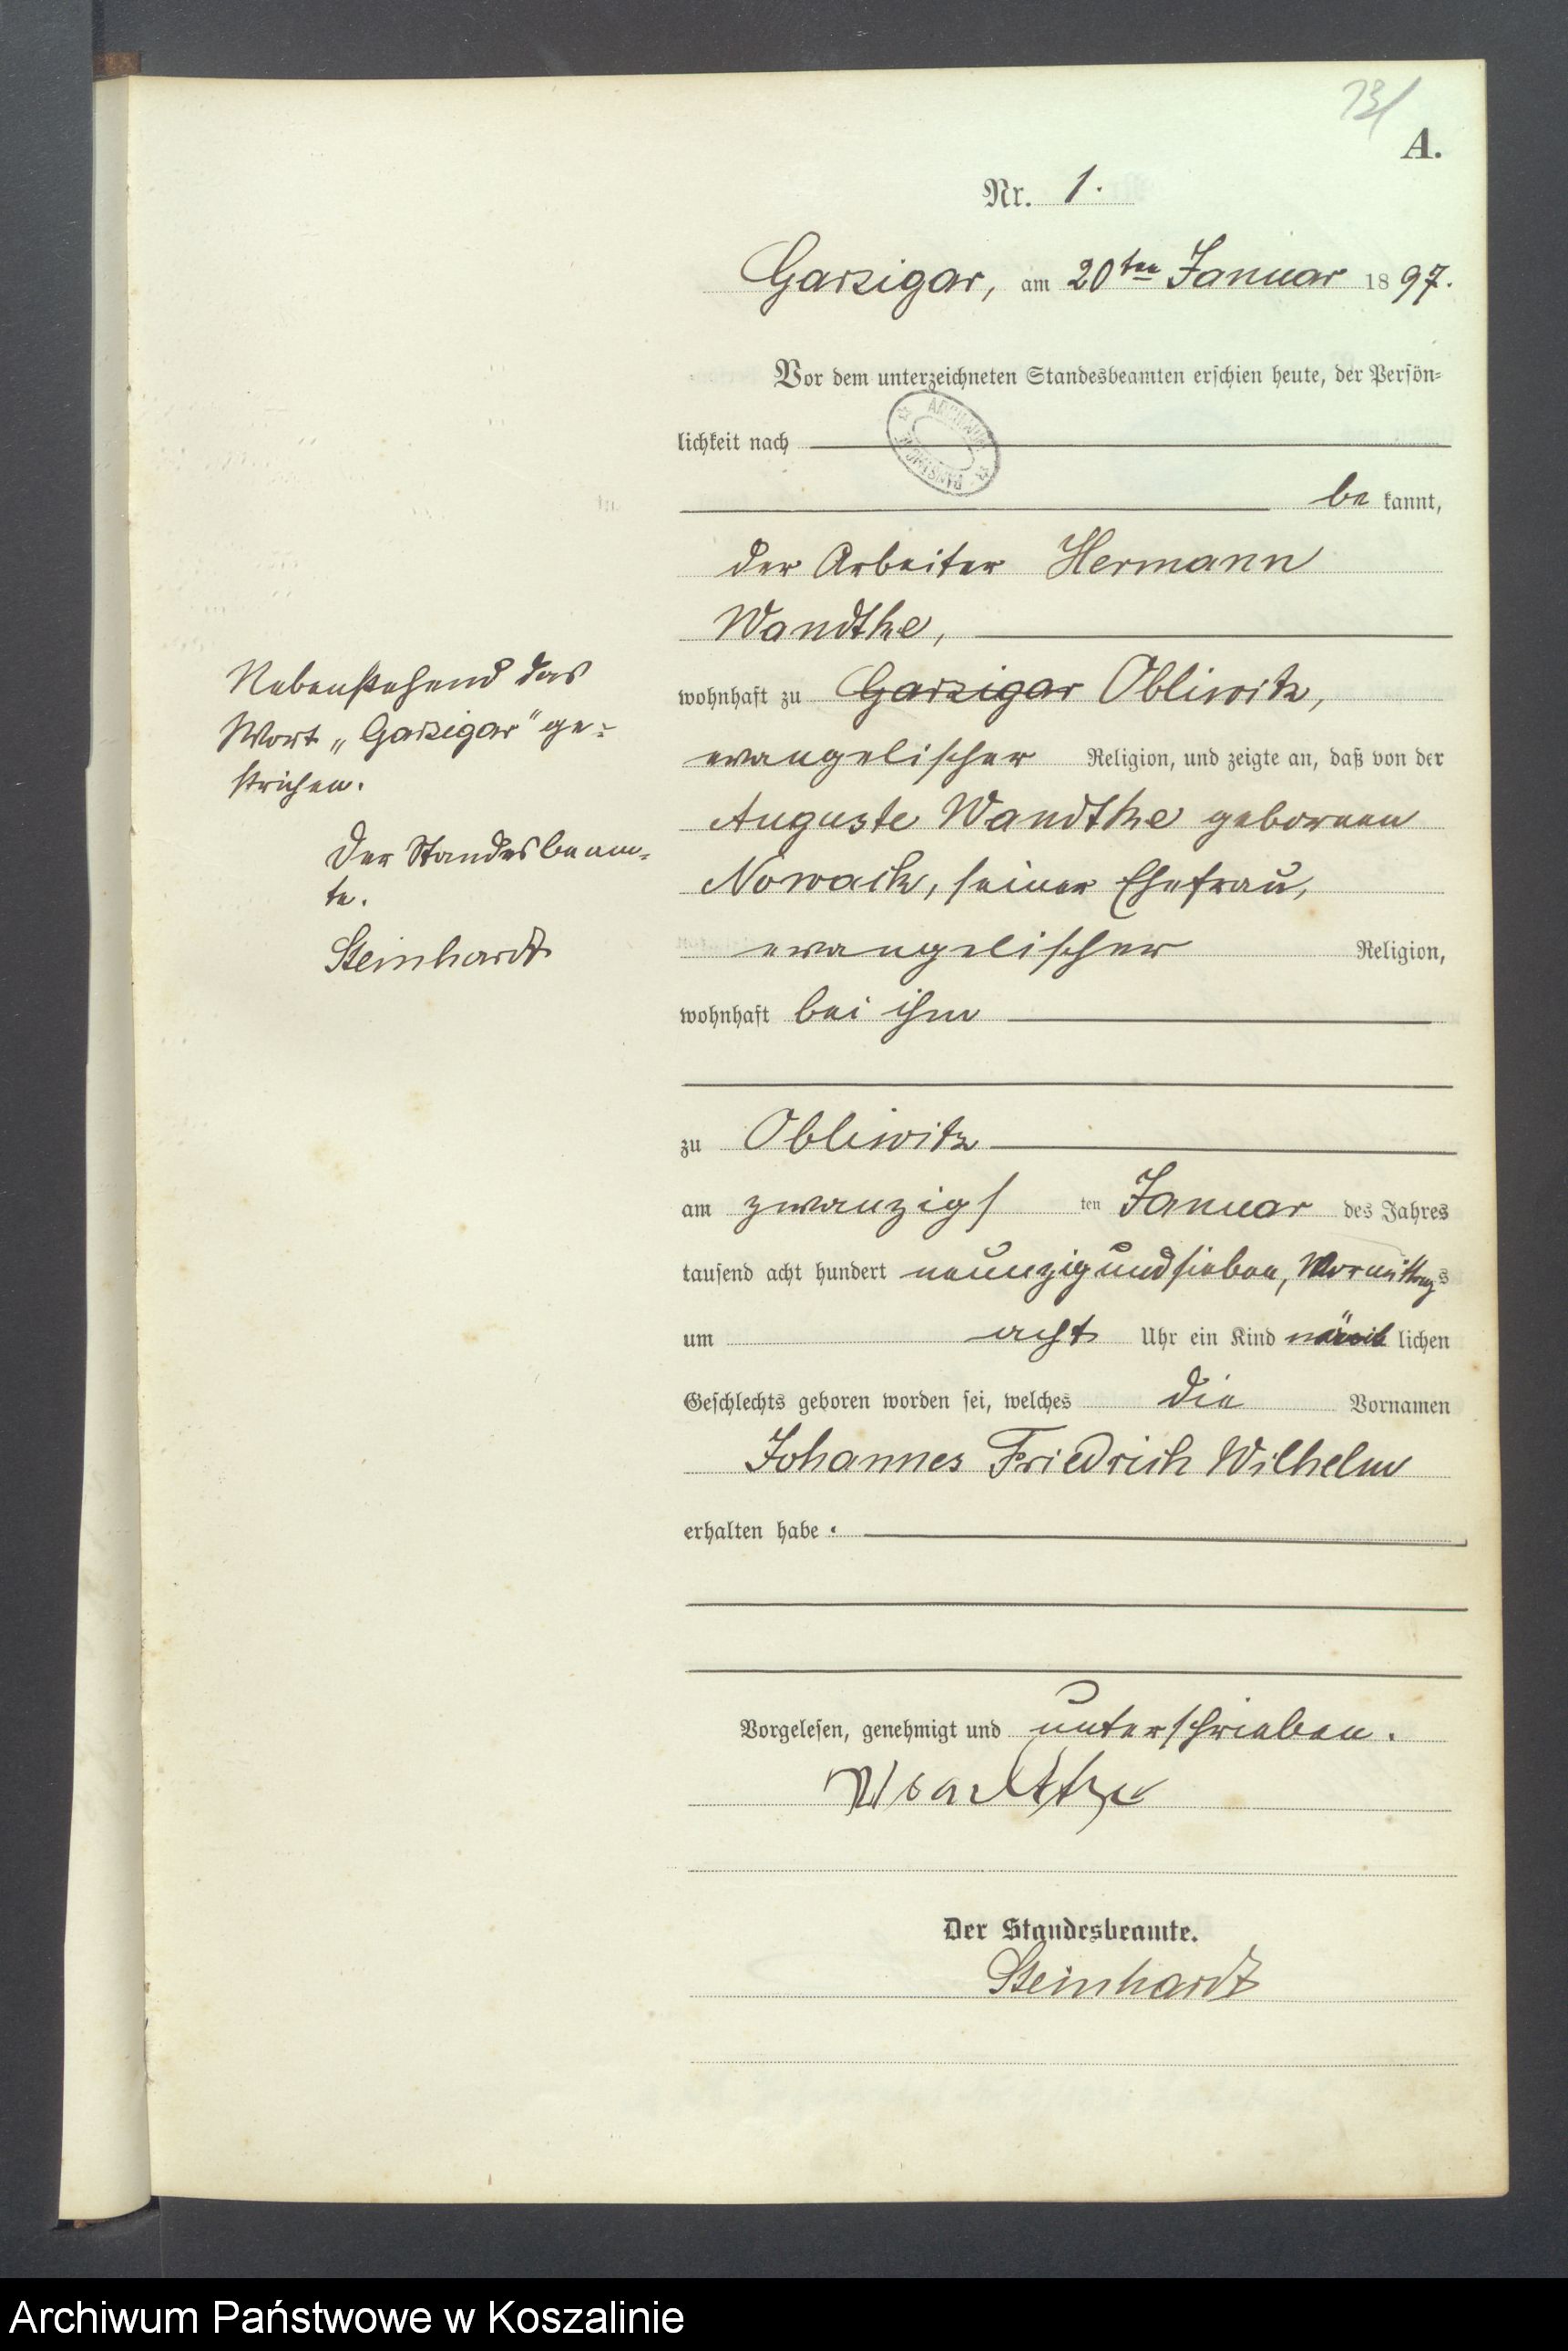 131
A.
Nr. 1.
Garzigar, am 20ten Januar 1897.
Vor dem unterzeichneten Standesbeamten erschien heute, der Persön-
lichkeit nach
ARCHIWUM PAŃSTWOWE
be kannt,
der Arbeiter Hermann
Wandtke,
wohnhaft zu Garzigar Obliwitz,
evangelischer Religion, und zeigte an, daß von der
Auguste Wandtke gebornen
Nowack, seiner Ehefrau,
evangelischer Religion,
wohnhaft bei ihm
zu Obliwitz
am zwanzigs ten Januar des Jahres
tausend acht hundert neunzig und sieben, Vormittags
um acht Uhr ein Kind männ lichen
Geschlechts geboren worden sei, welches die Vornamen
Johannes Friedrich Wilhelm
erhalten habe.
Vorgelesen, genehmigt und unterschrieben.
Wandtke
Der Standesbeamte.
Steinhardt
Nebenstehend das
Wort „Garzigar" ge-
strichen.
Der Standesbeam-
te.
Steinhardt
Archiwum Państwowe w Koszalinie